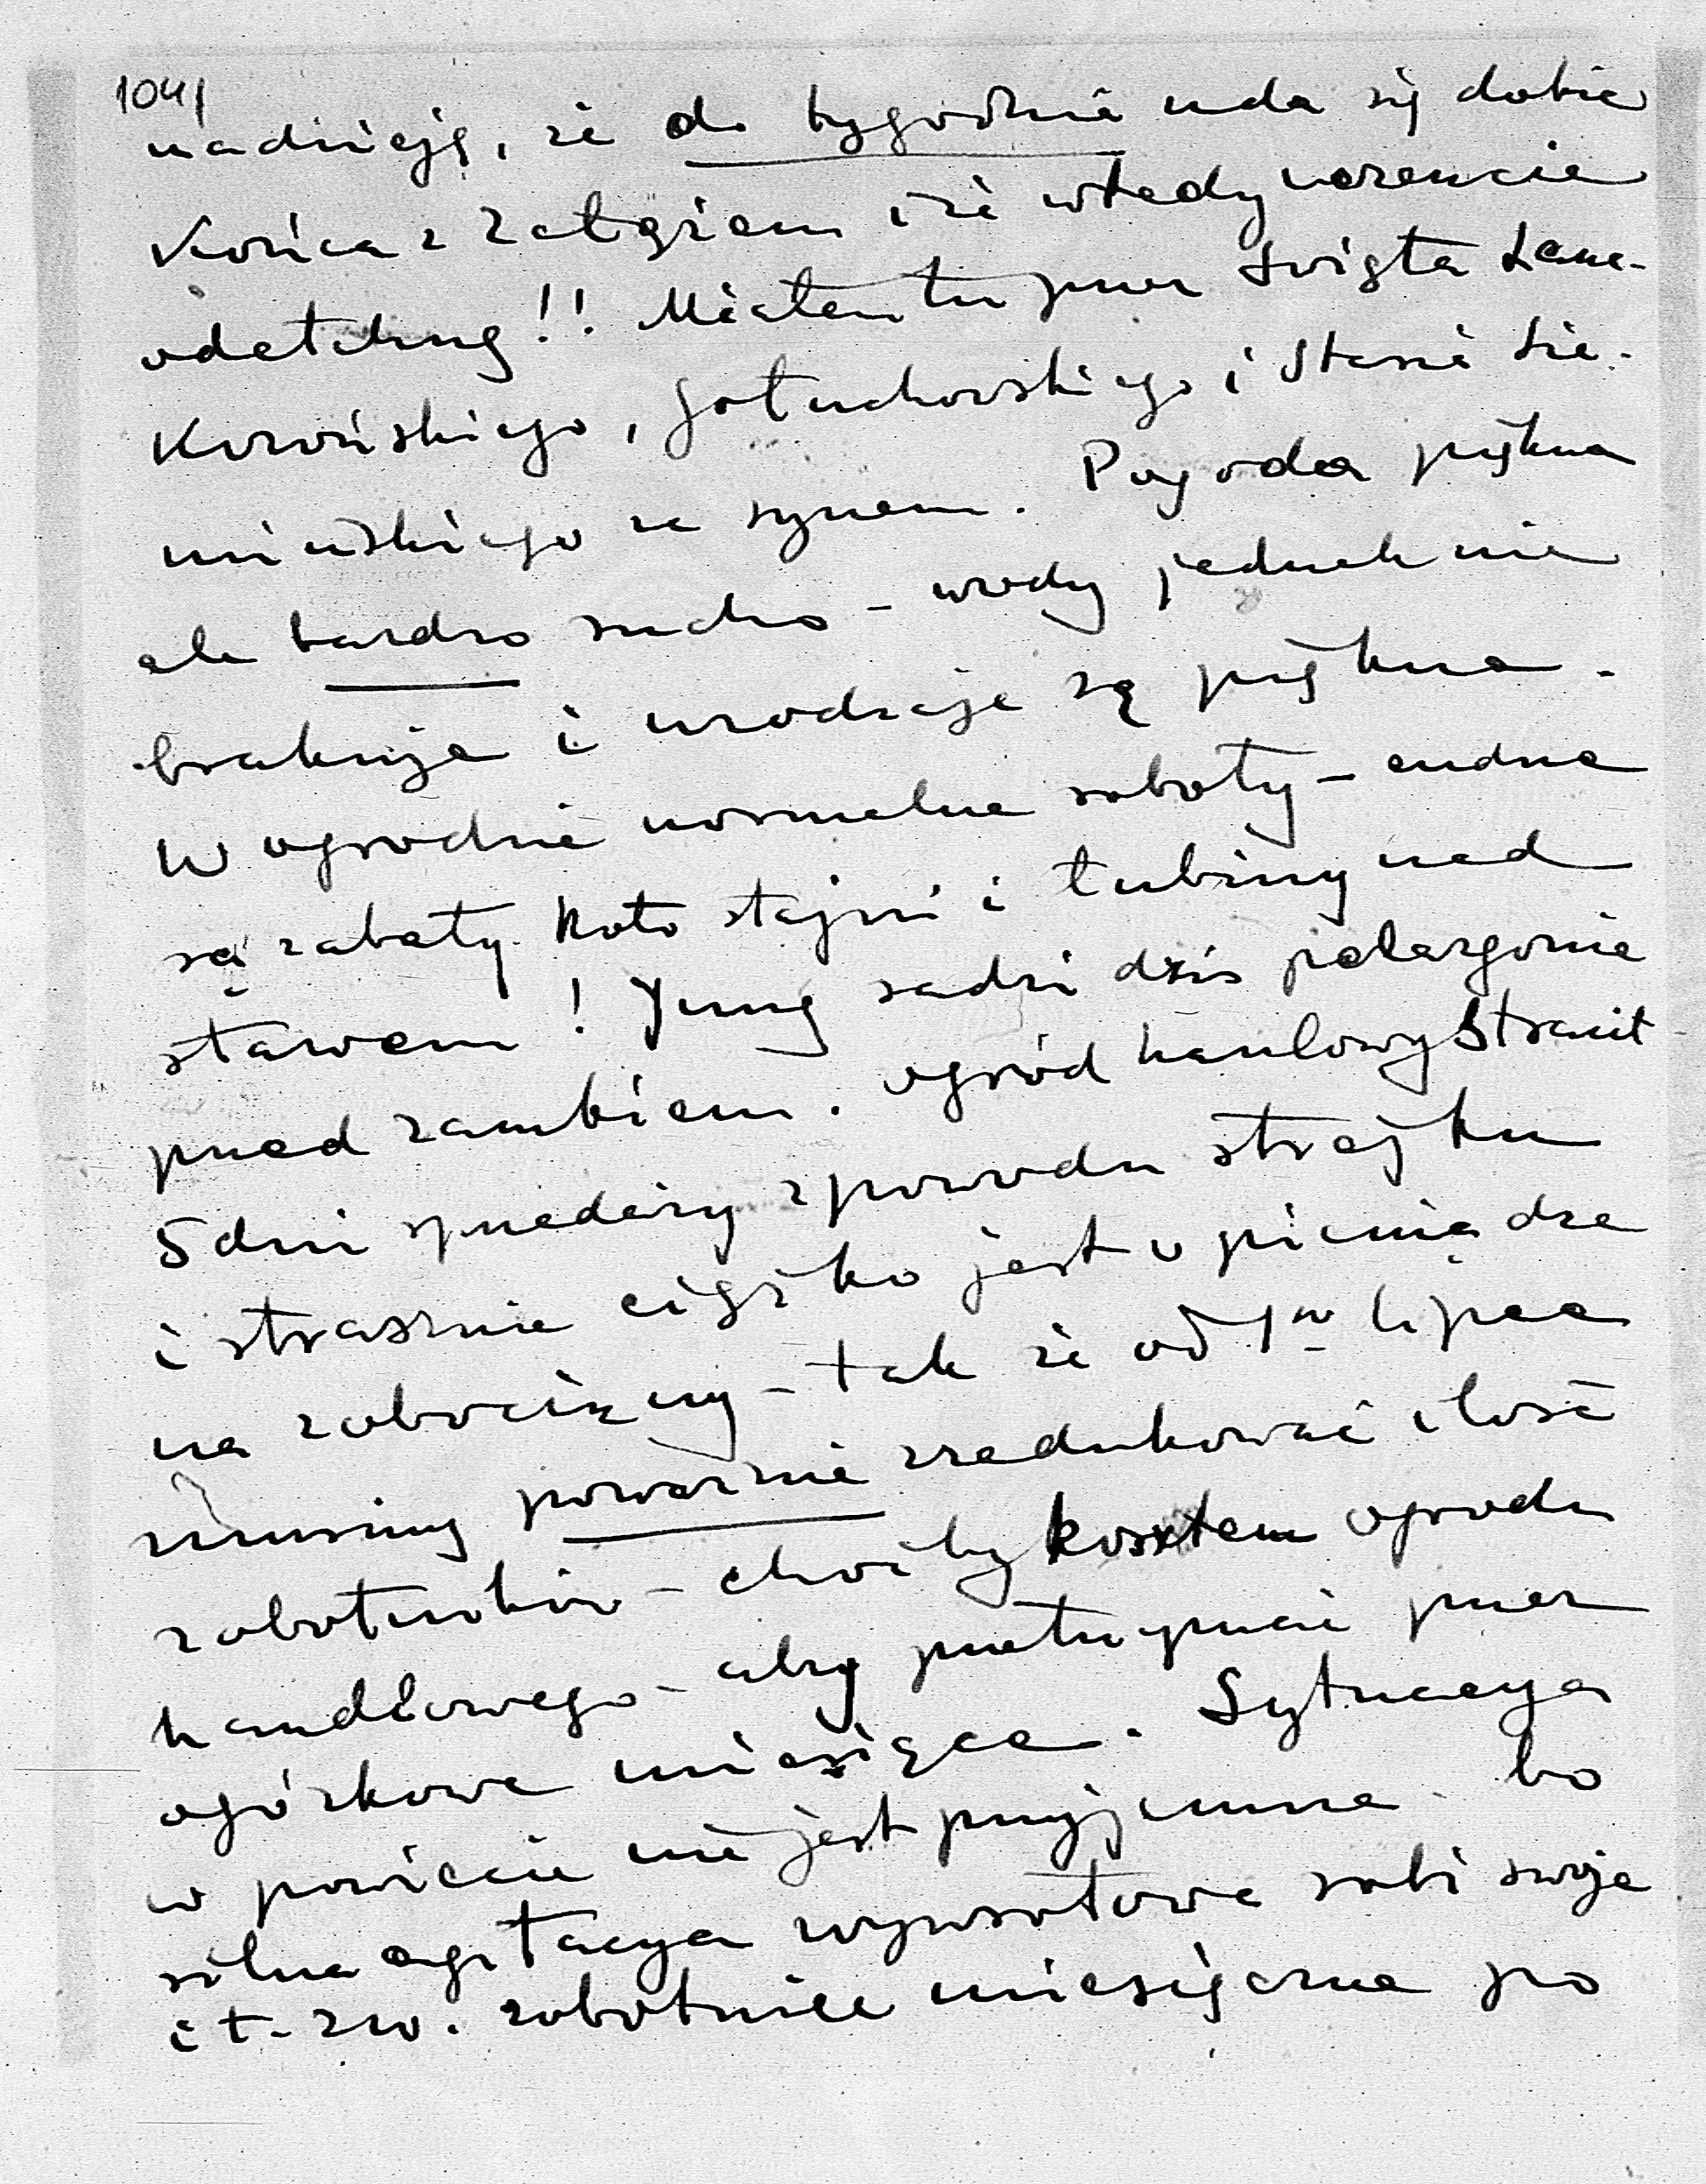 104/
nadzieję, że do tygodnia uda się dobić
Końca z zatęgiem i że wtedy wreszcie
odetchnę!! Miałem tu przez święta Lanc-
Korońskiego, Gołuchowskiego i Stasia Sie-
mieńskiego ze synem. Pogoda piękna
ale bardzo sucho – wody jednak nie
brakuje i urodzaje są piękne.
W ogrodzie normalne roboty – cudne
są rabaty koło stajni i łubiny nad
stawem! Jung sadzi dziś pelargonie
przed zamkiem. ogród handlowy stracił
5 dni sprzedaży z powodu strejku
i strasznie ciężko jest o pieniądze
na robocizny – tak że od 1ᵂ lipca
musimy poważnie zredukować ilość
robotników – choćby kosztem ogrodu
handlowego – aby przetrzymać przez
ogórkowe miesiące. Sytuacya
w powiecie nie jest przyjemna bo
silna agitacya wywrotowa robi swoje
i t. zw. robotnice miesięczne po